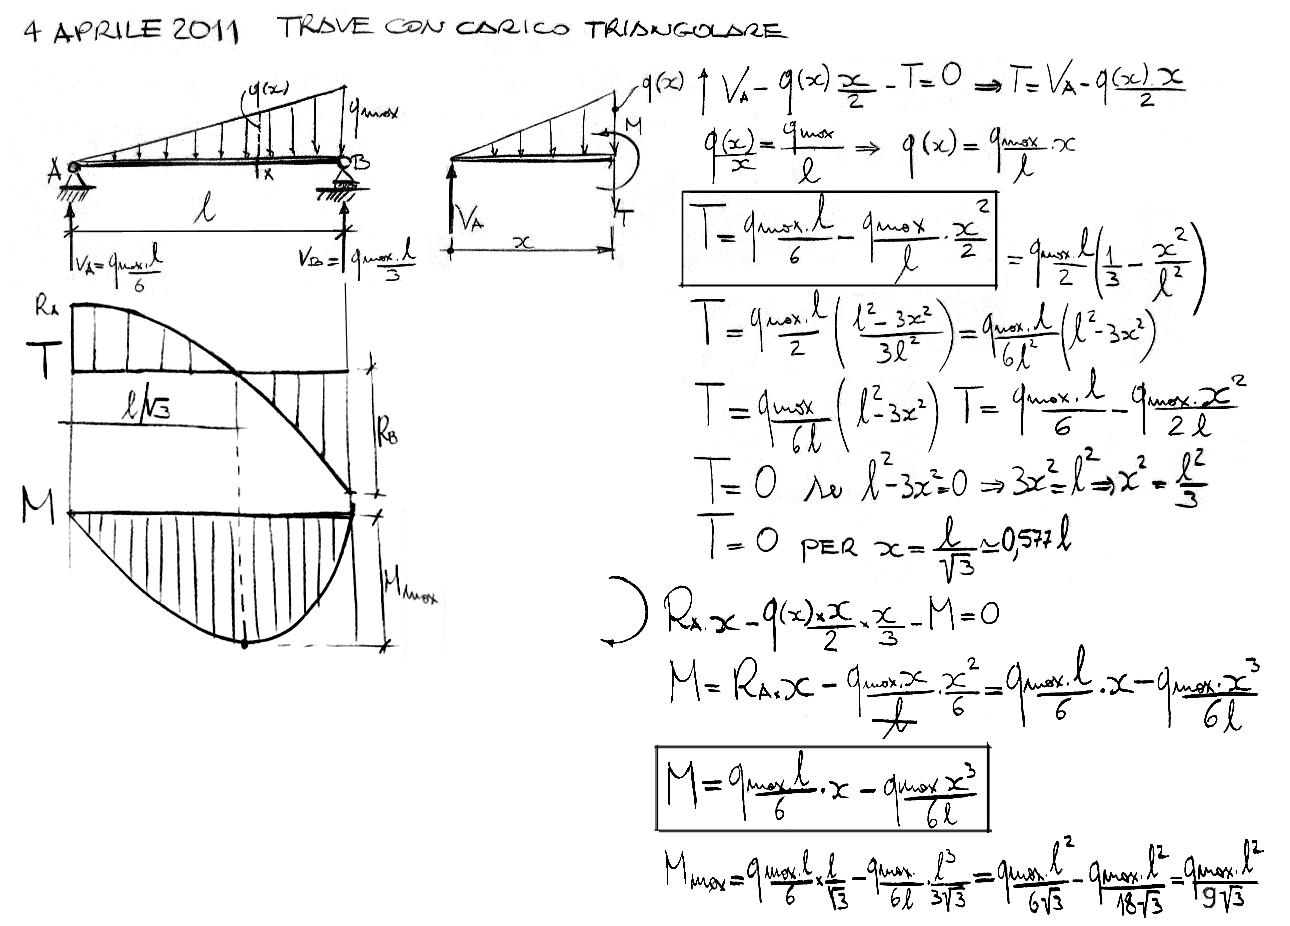 4 APRILE 2011 TRAVE CON CARICO TRIANGOLARE
q(x)
qmax
A
B
x
l
VA = qmax·l/6
VB = qmax·l/3
q(x)
M
VA
T
x
RA
T
l/√3
RB
M
Mmax
VA - q(x) x/2 - T = 0 ⇒ T = VA - q(x)·x/2
q(x)/x = qmax/l ⇒ q(x) = qmax/l · x
T = qmax·l/6 - qmax/l · x²/2 = qmax·l/2 (1/3 - x²/l²)
T = qmax·l/2 (l² - 3x²/3l²) = qmax·l/6l² (l² - 3x²)
T = qmax/6l (l² - 3x²) T = qmax·l/6 - qmax·x²/2l
T = 0 se l² - 3x² = 0 ⇒ 3x² = l² ⇒ x² = l²/3
T = 0 PER x = l/√3 ≃ 0,577 l
RA·x - q(x) × x/2 × x/3 - M = 0
M = RA·x - qmax·x/l · x²/6 = qmax·l/6 · x - qmax·x³/6l
M = qmax·l/6 · x - qmax x³/6l
Mmax = qmax·l/6 × l/√3 - qmax/6l · l³/3√3 = qmax·l²/6√3 - qmax·l²/18√3 = qmax·l²/9√3